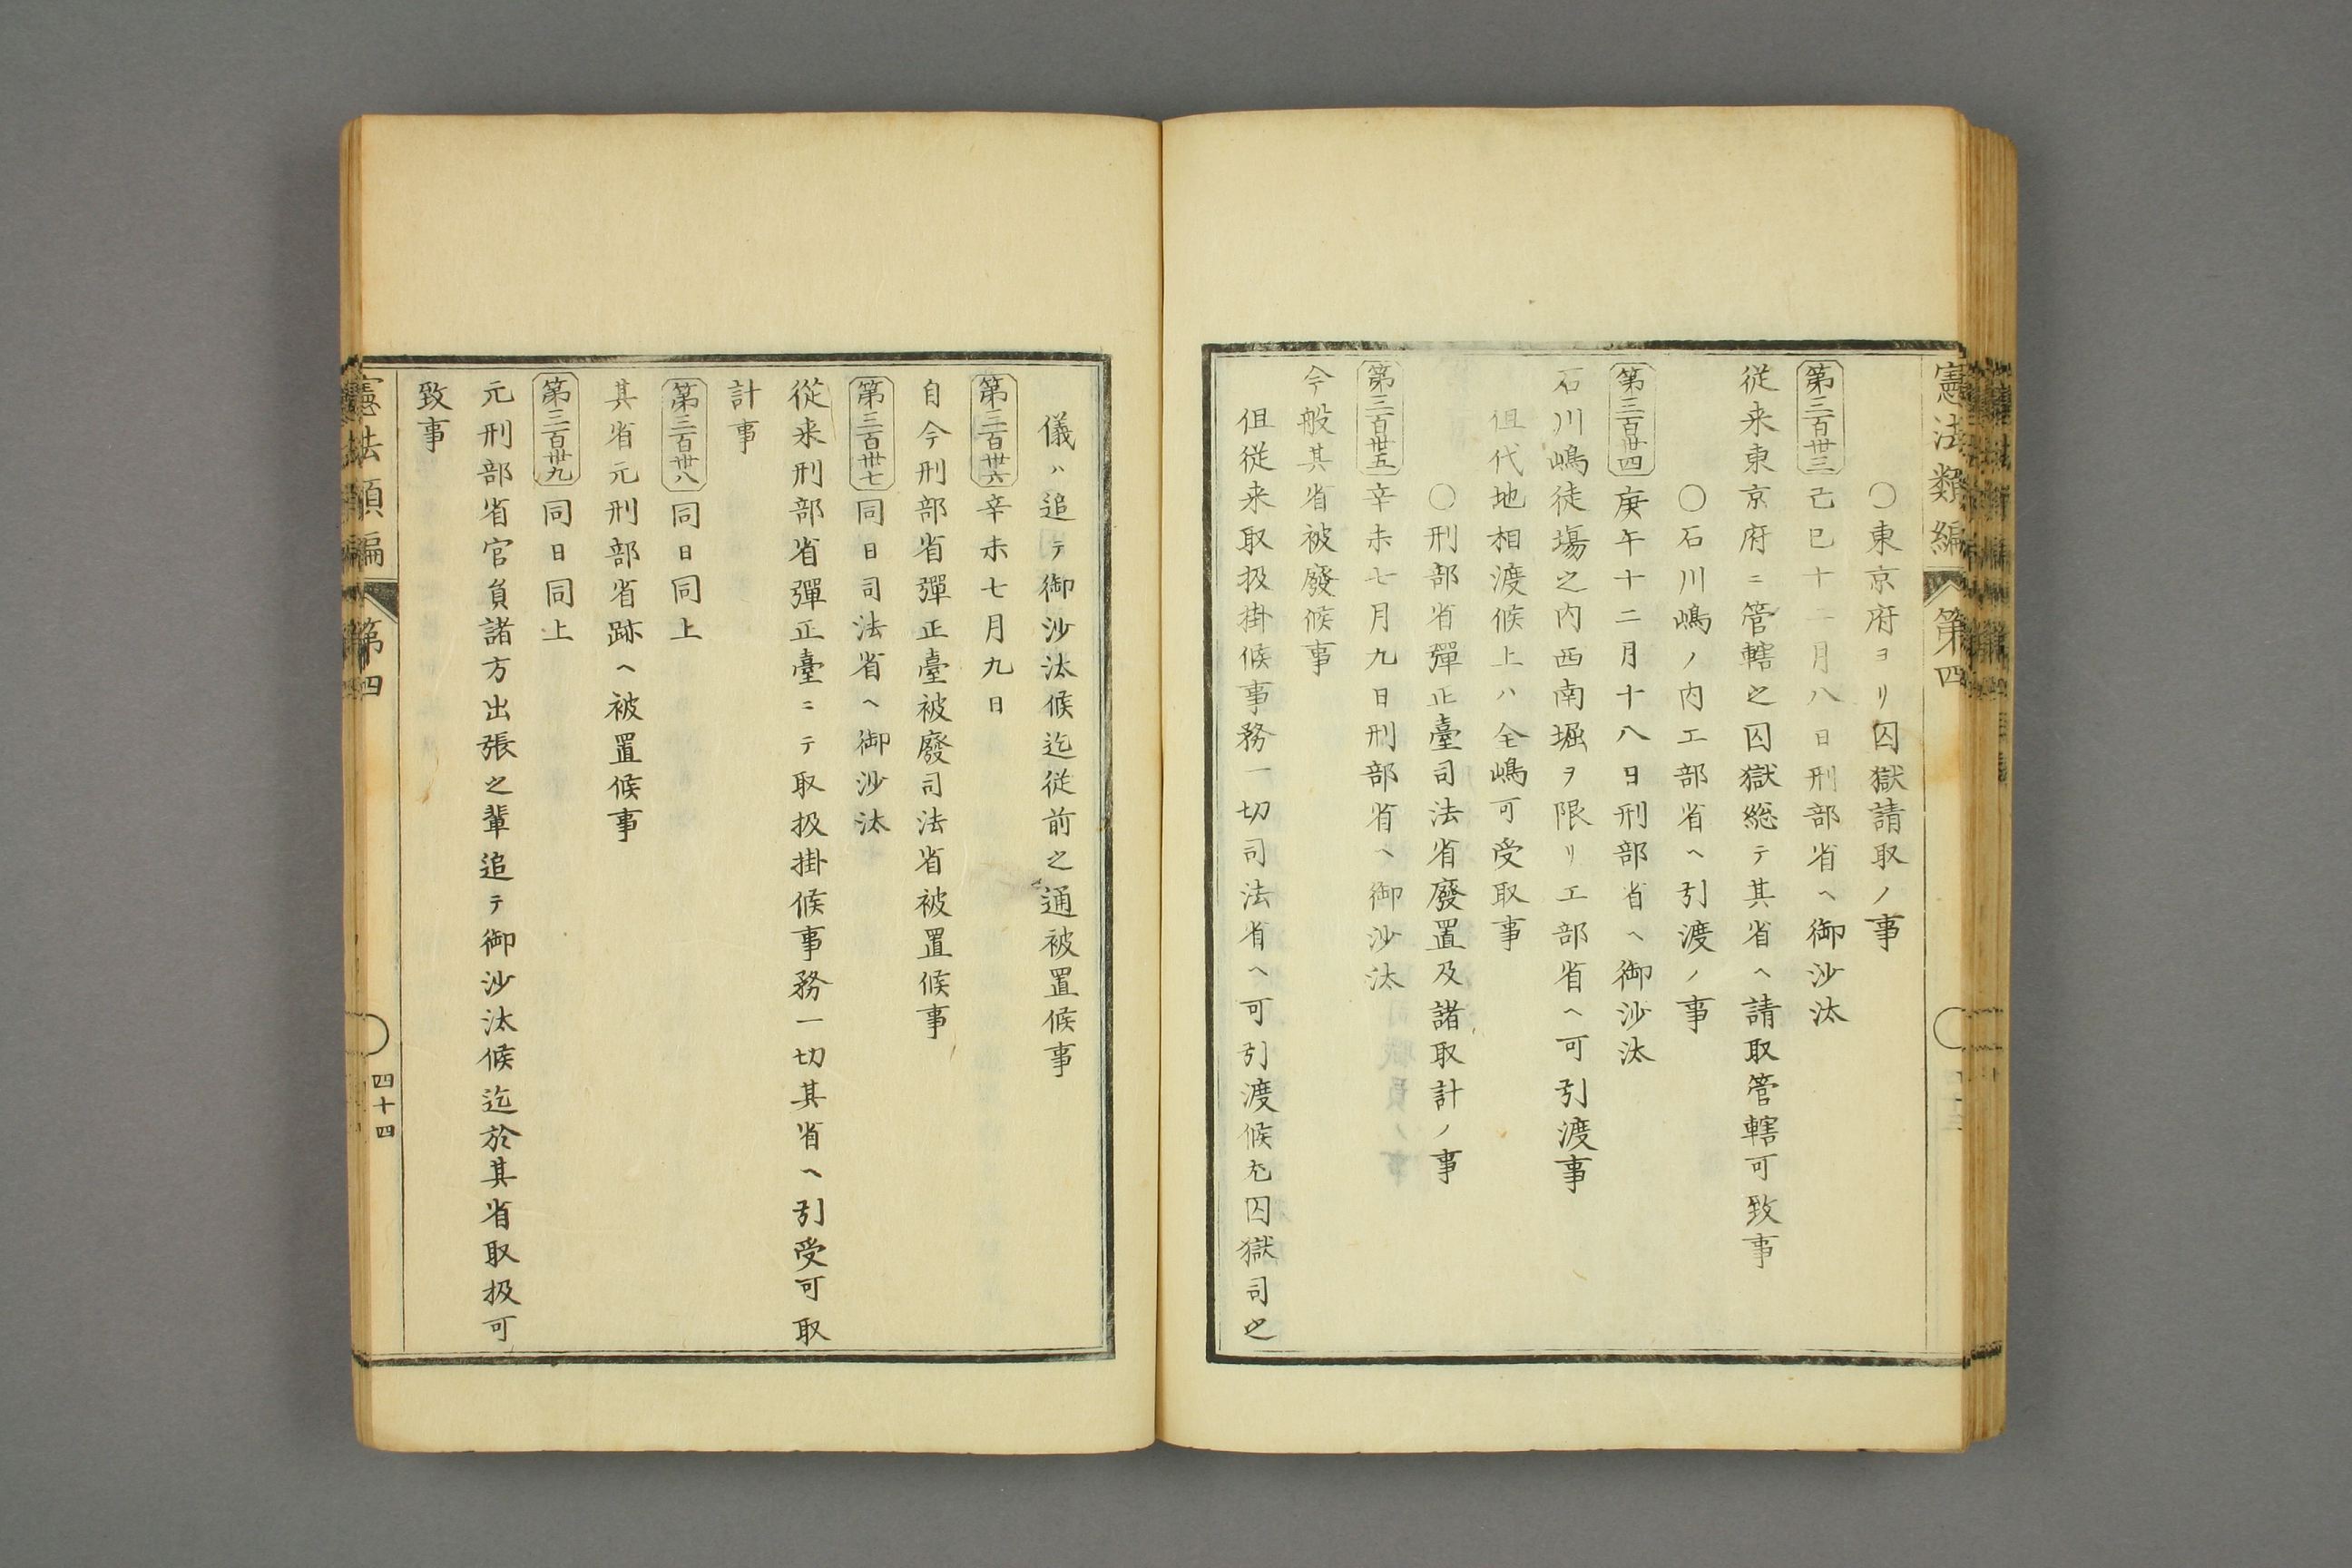 憲法類編
第四
○東京府ヨリ囚獄請取ノ事
第三百卅三 己巳十二月八日刑部省ヘ御沙汰
従来東京府ニ管轄之囚獄総テ其省ヘ請取管轄可致事
○石川嶋ノ内工部省ヘ引渡ノ事
第三百卅四 庚午十二月十八日刑部省ヘ御沙汰
石川嶋徒場之内西南堀ヲ限リ工部省ヘ可引渡事
但代地相渡候上ハ全嶋可受取事
○刑部省彈正臺司法省廢置及諸取計ノ事
第三百卅五 辛未七月九日刑部省ヘ御沙汰
今般其省被廢候事
但従来取扱掛候事務一切司法省ヘ可引渡候尤囚獄司之
儀ハ追テ御沙汰候迄従前之通被置候事
第三百卅六 辛未七月九日
自今刑部省彈正臺被廢司法省被置候事
第三百卅七 同日司法省ヘ御沙汰
從来刑部省彈正臺ニテ取扱掛候事務一切其省ヘ引受可取
計事
第三百卅八 同日同上
其省元刑部省跡ヘ被置候事
第三百卅九 同日同上
元刑部省官員諸方出張之輩追テ御沙汰候迄於其省取扱可
致事
憲法類編
第四
四十四